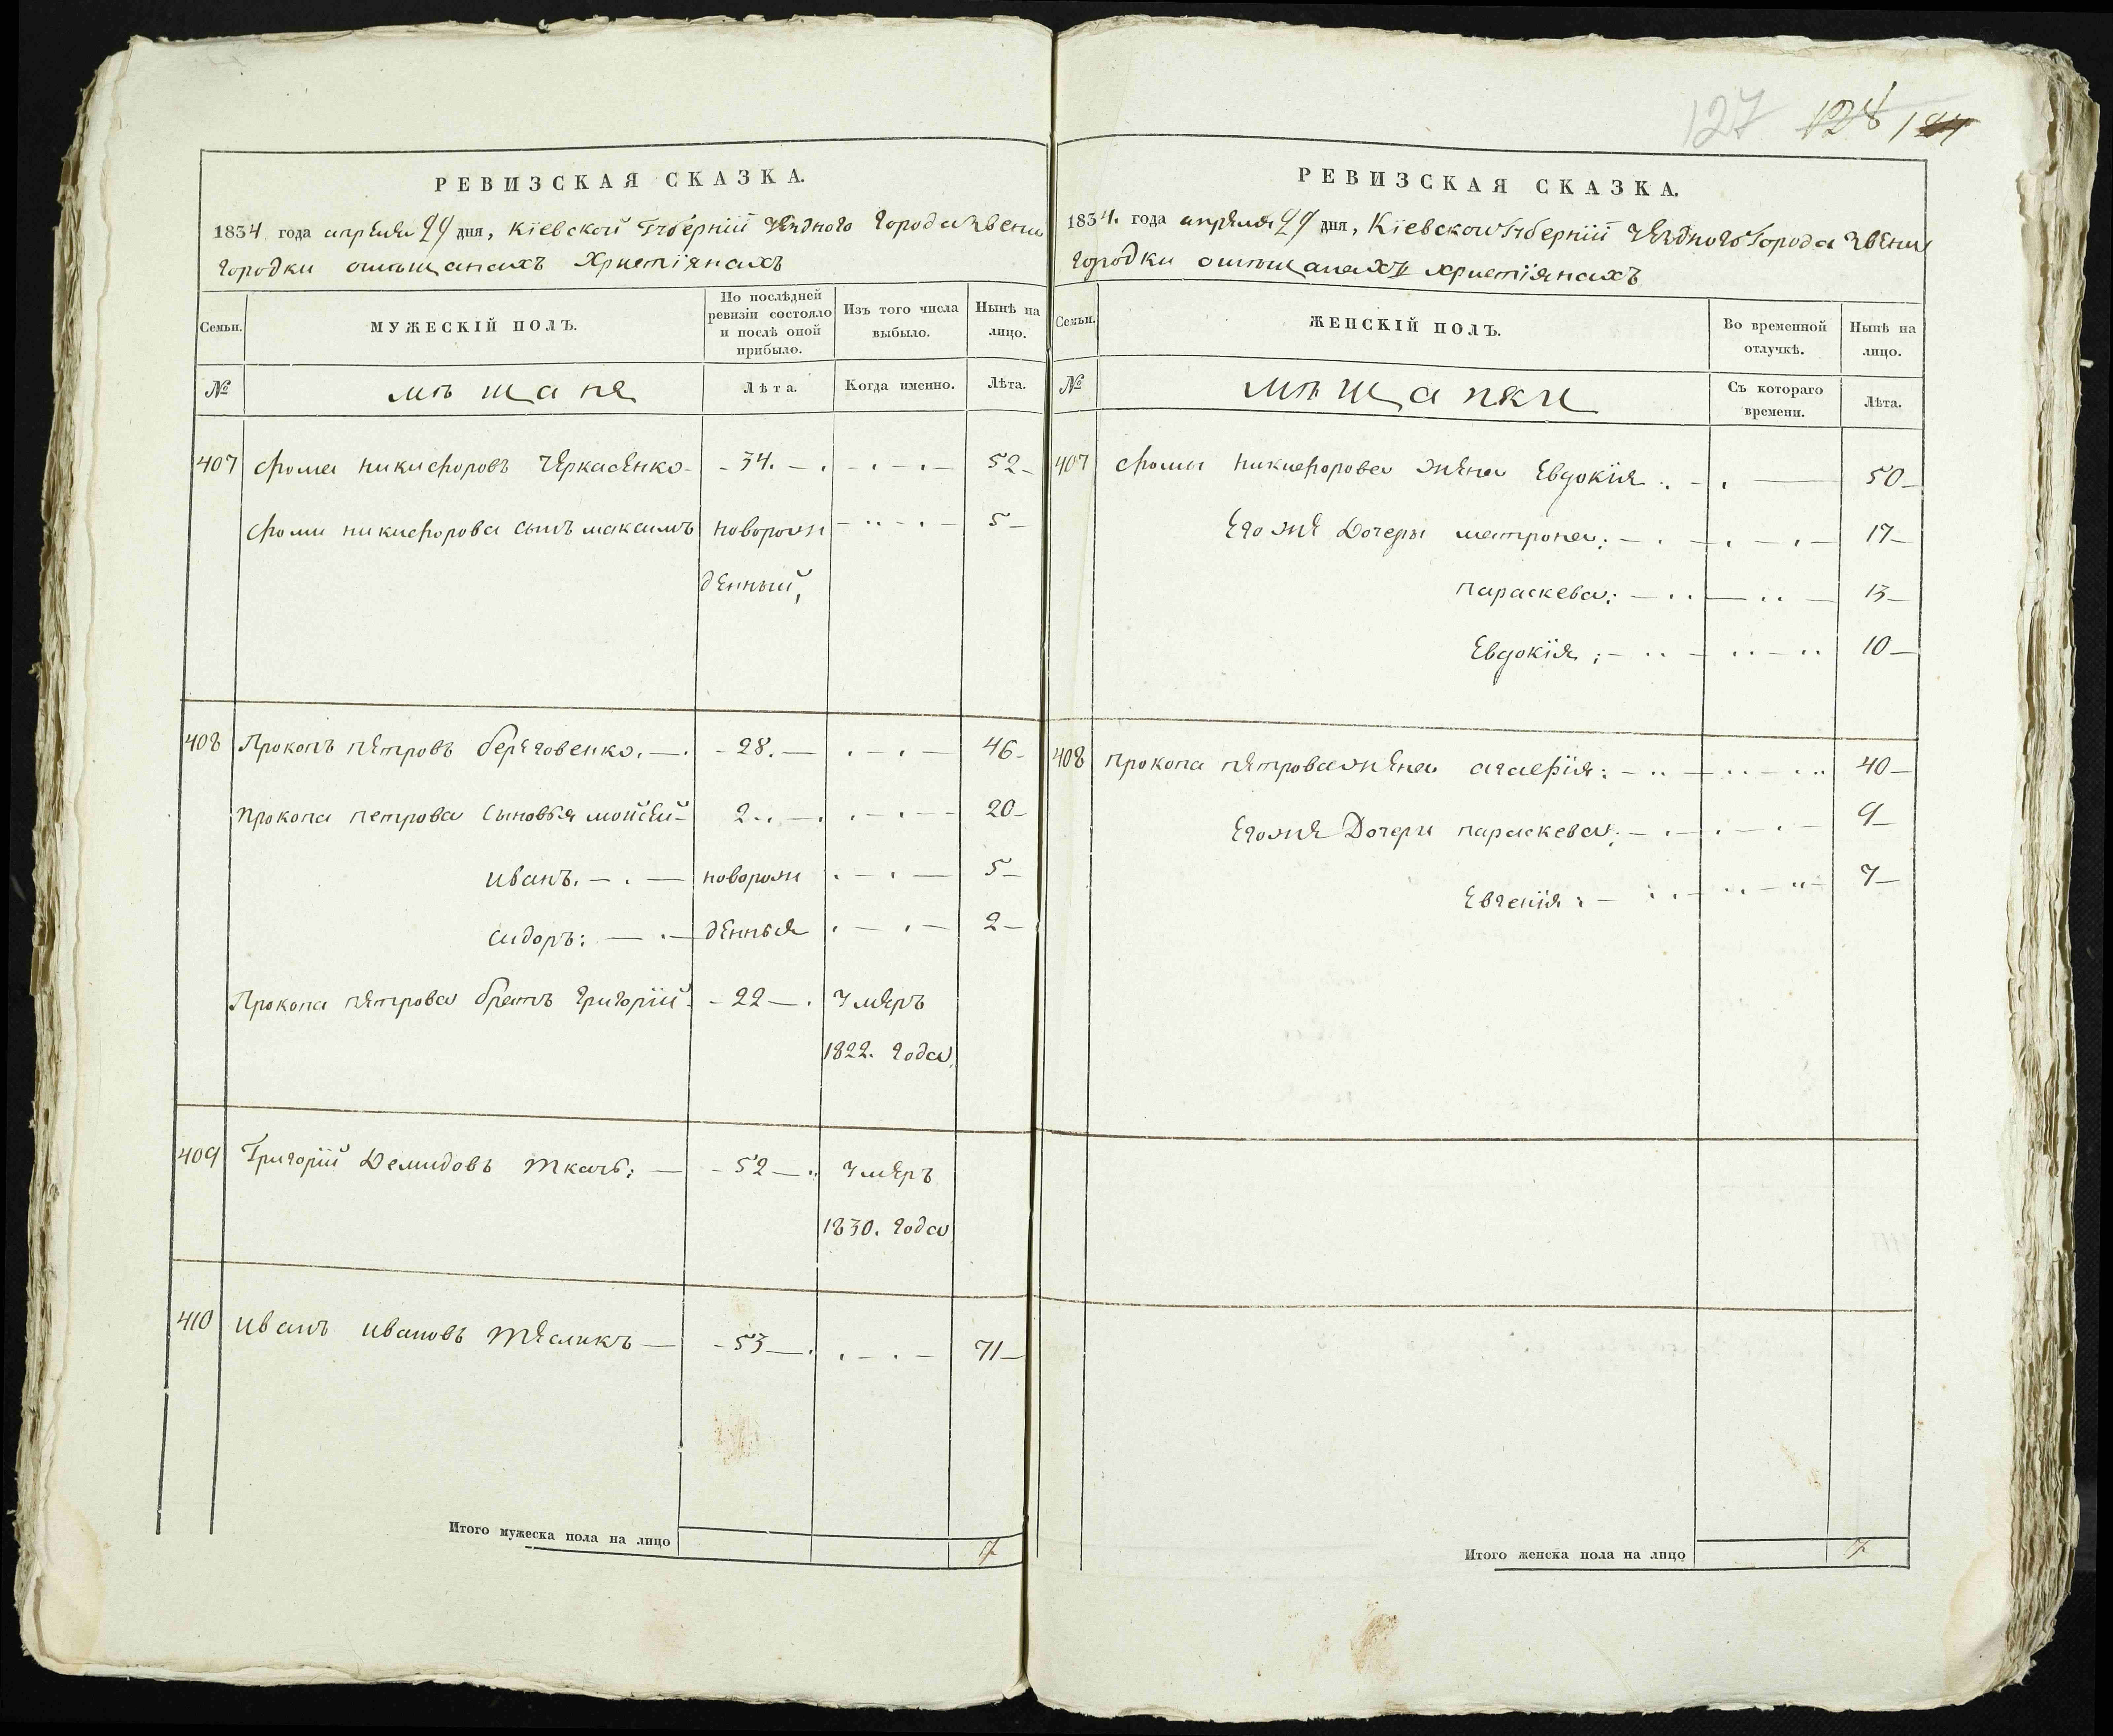 127 128
РЕВИЗСКАЯ СКАЗКА.
1834 года апреля 29 дня, Кіевской Губерніи Уезднаго Города Звени
городки омѣщанахъ Христіянахъ
Семьи.
МУЖЕСКІЙ ПОЛЪ.
По послѣдней ревизіи состояло и послѣ оной прибыло.
Изъ того числа выбыло.
Нынѣ на лицо.
№
мѣщане
Лѣта.
Когда именно.
Лѣта.
407 Фома Никифоровъ Черкасенко - 34. 52
Фоми Никифорова сынъ максимъ новорож 5
денный,
408 Прокопъ Петровъ Береговенко. 28. 46
Прокопа петрова сыновья мойсей 2 20
иванъ. новорож 5
сидоръ: денныя 2
Прокопа петрова братъ григорій 22 Умеръ
1822. года
409 Григорій Демидовъ Ткачь: 52 Умеръ
1830. года
410 иванъ ивановъ 53 71
Итого мужеска пола на лицо 7
РЕВИЗСКАЯ СКАЗКА.
1834. года апреля 29 дня, Кіевской Губерніи Уезднаго Города Звени
городки омѣщанахъ христіянахъ
Семьи.
ЖЕНСКІЙ ПОЛЪ.
Во временной отлучкѣ.
Нынѣ на лицо.
№
мѣщанки
Съ котораго времени.
Лѣта.
407 Фоми Никифорова жена Евдокія 50
Егоже Дочери матрона: 17
параскева: 13
Евдокія: 10
408 прокопа петрова жена агафія: 40
Егоже Дочери параскева: 9
Евгенія: 7
Итого женска пола на лицо 7